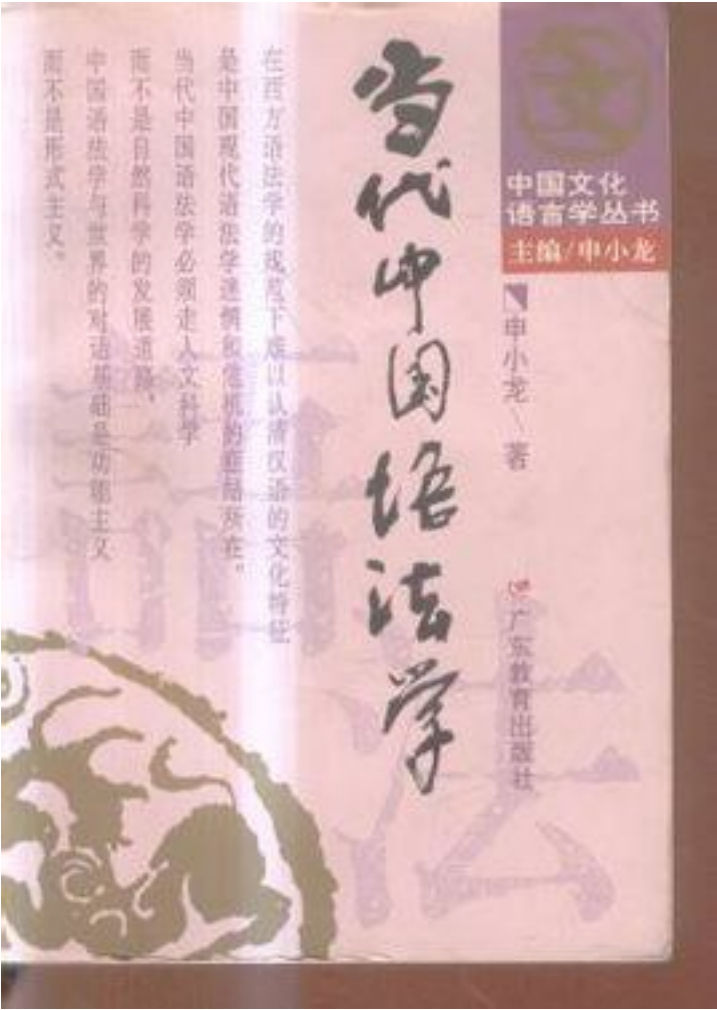 中国文化
语言学丛书
主编/申小龙
申小龙\著
广东教育出版社
当代中国语法学
在西方语法学的规范下难以认清汉语的文化特征
是中国现代语法学迷惘和危机的症结所在。
当代中国语法学必须走人文科学
而不是自然科学的发展道路，
中国语法学与世界的对话基础是功能主义
而不是形式主义。
语法